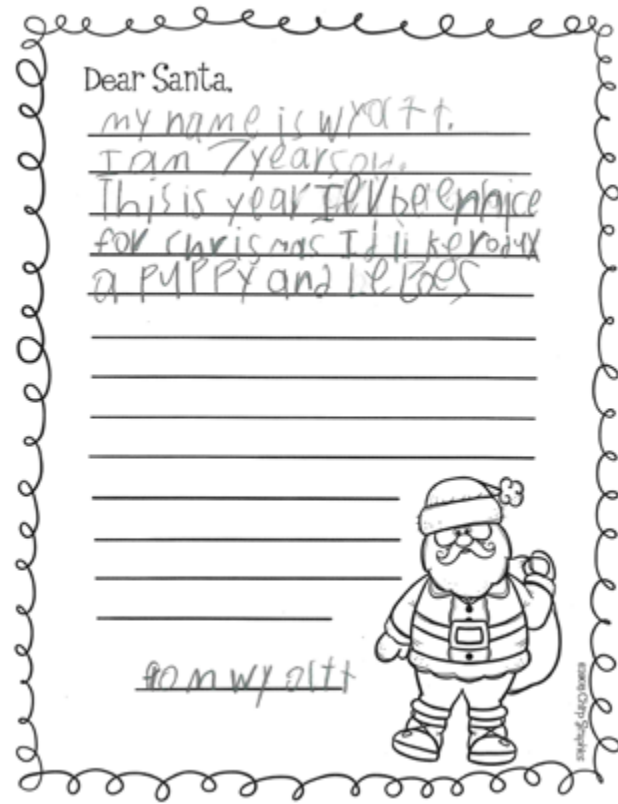 Dear Santa,
my name is wyatt.
I am 7 years old.
This is year I been nice
for chrismas Id like robux
a puppy and legoes
wyatt